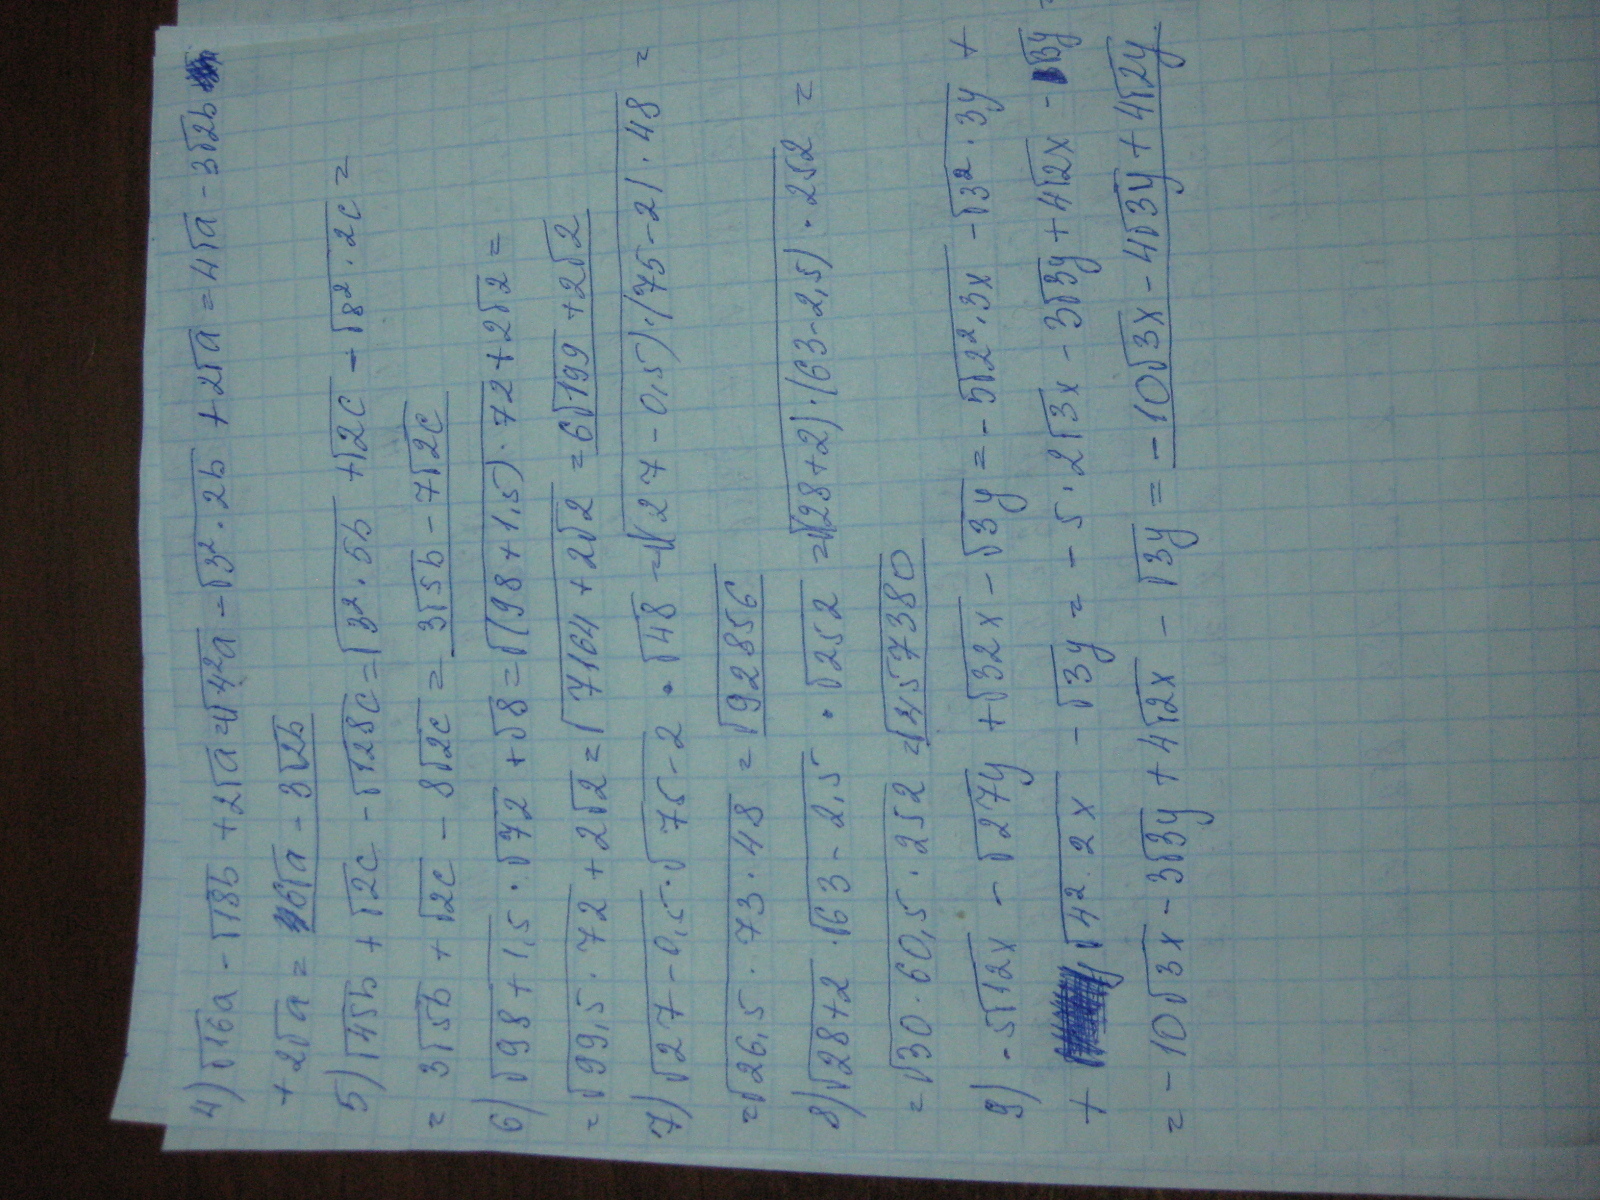 4) √16a - √18b + 2√a = √4²a - √3²·2b + 2√a = 4√a - 3√2b
+ 2√a = 6√a - 3√2b
5) √45b + √2c - √128c = √3²·5b + √2c - √8²·2c =
= 3√5b + √2c - 8√2c = 3√5b - 7√2c
6) √98+1,5 · √72 + √8 = √(98+1,5)·72 + 2√2 =
= √99,5·72 + 2√2 = √7164 + 2√2 = 6√199 + 2√2
7) √27-0,5 · √75-2 · √48 = √(27-0,5)·(75-2)·48 =
= √26,5·73·48 = √92856
8) √28+2 · √63-2,5 · √252 = √(28+2)·(63-2,5)·252 =
= √30·60,5·252 = √457380
9) -5√12x - √27y + √32x - √3y = -5√2²·3x - √3²·3y +
+ √4²·2x - √3y = -5·2√3x - 3√3y + 4√2x - √3y =
= -10√3x - 3√3y + 4√2x - √3y = -10√3x - 4√3y + 4√2y